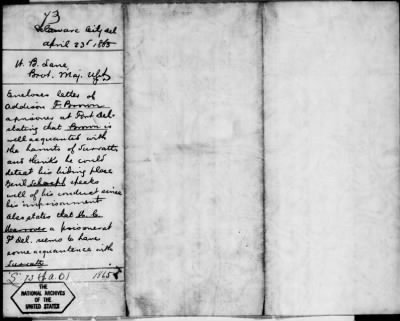 73
Delaware City Del
April 23d 1865
H. B. Lane,
Brvt. Maj.
Encloses letter of
Addison F. Brown
a prisoner at Fort Del.
stating that Brown is
well acquainted with
the haunts of Surratt
and thinks he could
detect his hiding place
Genl Schoepf speaks
well of his conduct since
his imprisonment
Also states that
a prisoner at
Ft Del. seems to have
some acquaintance with
Surratt
S. 73 1865
THE
NATIONAL ARCHIVES
OF THE
UNITED STATES